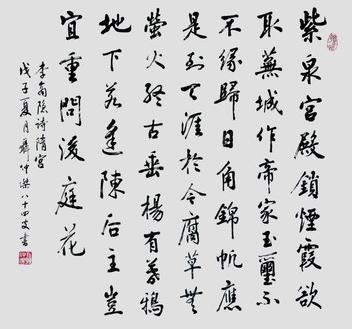 紫泉宮殿鎖煙霞欲
取蕪城作帝家玉璽不
不緣歸日角錦帆應
是到天涯於今腐草無
螢火終古垂楊有暮鴉
地下若逢陳后主豈
宜重問後庭花
李商隱詩隋宮
戊子夏月薛仲八十四叟書